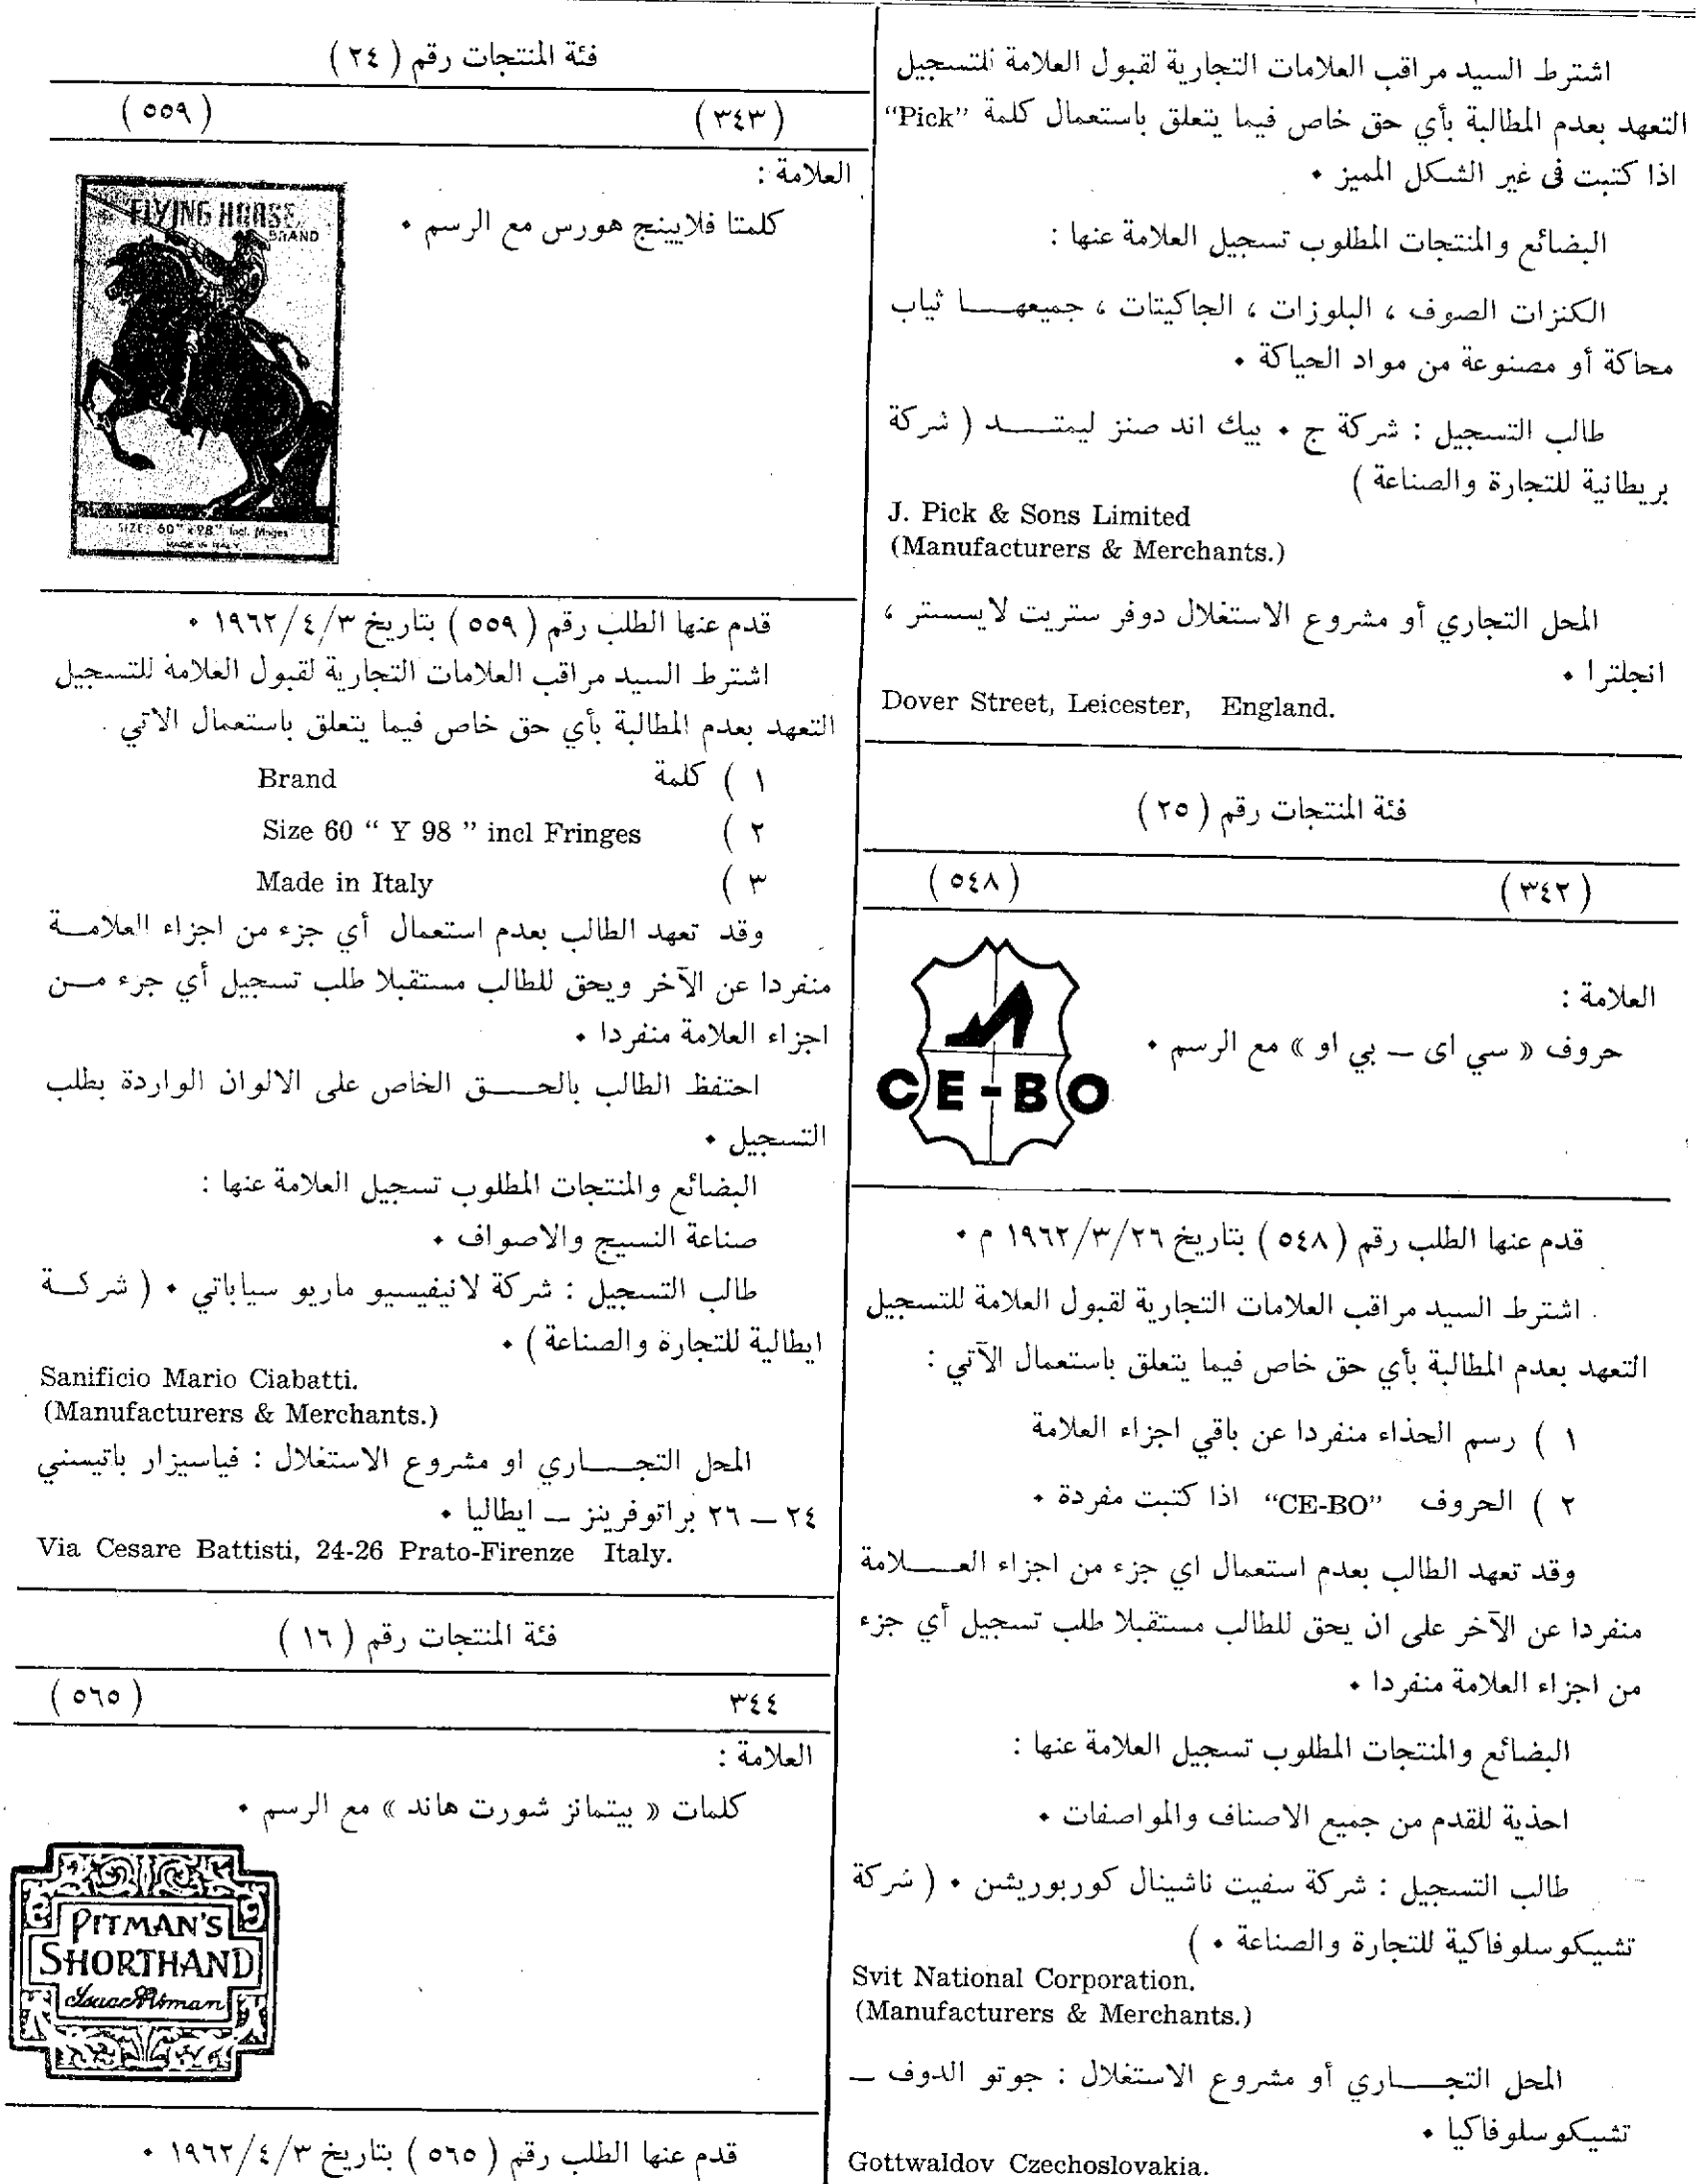 اشترط السيد مراقب العلامات التجارية لقبول العلامة للتسجيل
التعهد بعدم المطالبة بأي حق خاص فيما يتعلق باستعمال كلمة “Pick”
اذا كتبت فى غير الشكل المميز ٠
البضائع والمنتجات المطلوب تسجيل العلامة عنها :
الكنزات الصوف ، البلوزات ، الجاكيتات ، جميعهـــا ثياب
محاكة أو مصنوعة من مواد الحياكة ٠
طالب التسجيل : شركة ج ٠ بيك اند صنز ليمتـــد ( شركة
بريطانية للتجارة والصناعة )
J. Pick & Sons Limited
(Manufacturers & Merchants.)
المحل التجاري أو مشروع الاستغلال دوفر ستريت لايسستر ،
انجلترا ٠
Dover Street, Leicester, England.
فئة المنتجات رقم ( ٢٥ )
( ٣٤٢ ) ( ٥٤٨ )
العلامة :
حروف « سي اى ــ بي او » مع الرسم ٠
CE-BO
قدم عنها الطلب رقم ( ٥٤٨ ) بتاريخ ١٩٦٢/٣/٢٦ م ٠
اشترط السيد مراقب العلامات التجارية لقبول العلامة للتسجيل
التعهد بعدم المطالبة بأي حق خاص فيما يتعلق باستعمال الآتي :
١ ) رسم الحذاء منفردا عن باقي اجزاء العلامة
٢ ) الحروف “CE-BO” اذا كتبت مفردة ٠
وقد تعهد الطالب بعدم استعمال اي جزء من اجزاء العــــلامة
منفردا عن الآخر على ان يحق للطالب مستقبلا طلب تسجيل أي جزء
من اجزاء العلامة منفردا ٠
البضائع والمنتجات المطلوب تسجيل العلامة عنها :
احذية للقدم من جميع الاصناف والمواصفات ٠
طالب التسجيل : شركة سفيت ناشينال كوربوريشن ٠ ( شركة
تشيكوسلوفاكية للتجارة والصناعة ٠ )
Svit National Corporation.
(Manufacturers & Merchants.)
المحل التجـــــاري أو مشروع الاستغلال : جوتو الدوف ــ
تشيكوسلوفاكيا ٠
Gottwaldov Czechoslovakia.
فئة المنتجات رقم ( ٢٤ )
( ٣٤٣ ) ( ٥٥٩ )
العلامة :
كلمتا فلايينج هورس مع الرسم ٠
FLYING HORSE
BRAND
SIZE: 60" x 98" incl. fringes
MADE IN ITALY
قدم عنها الطلب رقم ( ٥٥٩ ) بتاريخ ١٩٦٢/٤/٣ ٠
اشترط السيد مراقب العلامات التجارية لقبول العلامة للتسجيل
التعهد بعدم المطالبة بأي حق خاص فيما يتعلق باستعمال الاتي .
١ ) كلمة Brand
٢ ) Size 60 “ Y 98 ” incl Fringes
٣ ) Made in Italy
وقد تعهد الطالب بعدم استعمال أي جزء من اجزاء العلامـــة
منفردا عن الآخر ويحق للطالب مستقبلا طلب تسجيل أي جزء مـــن
اجزاء العلامة منفردا ٠
احتفظ الطالب بالحـــــق الخاص على الالوان الواردة بطلب
التسجيل ٠
البضائع والمنتجات المطلوب تسجيل العلامة عنها :
صناعة النسيج والاصواف ٠
طالب التسجيل : شركة لانيفيسيو ماريو سياباتي ٠ ( شركـــة
ايطالية للتجارة والصناعة ) ٠
Sanificio Mario Ciabatti.
(Manufacturers & Merchants.)
المحل التجـــــاري او مشروع الاستغلال : فياسيزار باتيستي
٢٤ ــ ٢٦ براتوفرينز ــ ايطاليا ٠
Via Cesare Battisti, 24-26 Prato-Firenze Italy.
فئة المنتجات رقم ( ١٦ )
٣٤٤ ( ٥٦٥ )
العلامة :
كلمات « بيتمانز شورت هاند » مع الرسم ٠
PITMAN'S
SHORTHAND
Isaac Pitman
قدم عنها الطلب رقم ( ٥٦٥ ) بتاريخ ١٩٦٢/٤/٣ ٠